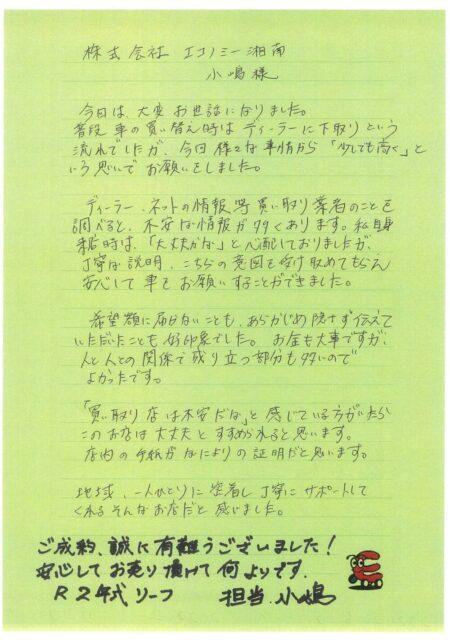 株式会社 エコノミー湘南
小嶋様
今日は、大変お世話になりました。
普段車の買い替え時はディーラーに下取りという
流れでしたが、今回様々な事情から「少しでも高く」と
いう思いでお願いをしました。
ディーラー、ネットの情報等買い取り業者のことを
調べると、不安な情報が多くあります。私自身
来店時は、「大丈夫かな」と心配しておりましたが、
丁寧な説明、こちらの意図を受け取めてもらえ
安心して車をお願いすることができました。
希望額に届かないことも、あらかじめ隠さず伝えて
いただいたことも好印象でした。お金も大事ですが、
人と人との関係で成り立つ部分も多いので
よかったです。
「買い取り店は不安だな」と感じている方がいたら
このお店は大丈夫とすすめられると思います。
店内の手紙がなによりの証明だと思います。
地域、一人ひとりに密着し丁寧にサポートして
くれるそんなお店だと感じました。
ご成約、誠に有難うございました!
安心してお売り頂けて何よりです。
R2年式リーフ 担当 小嶋